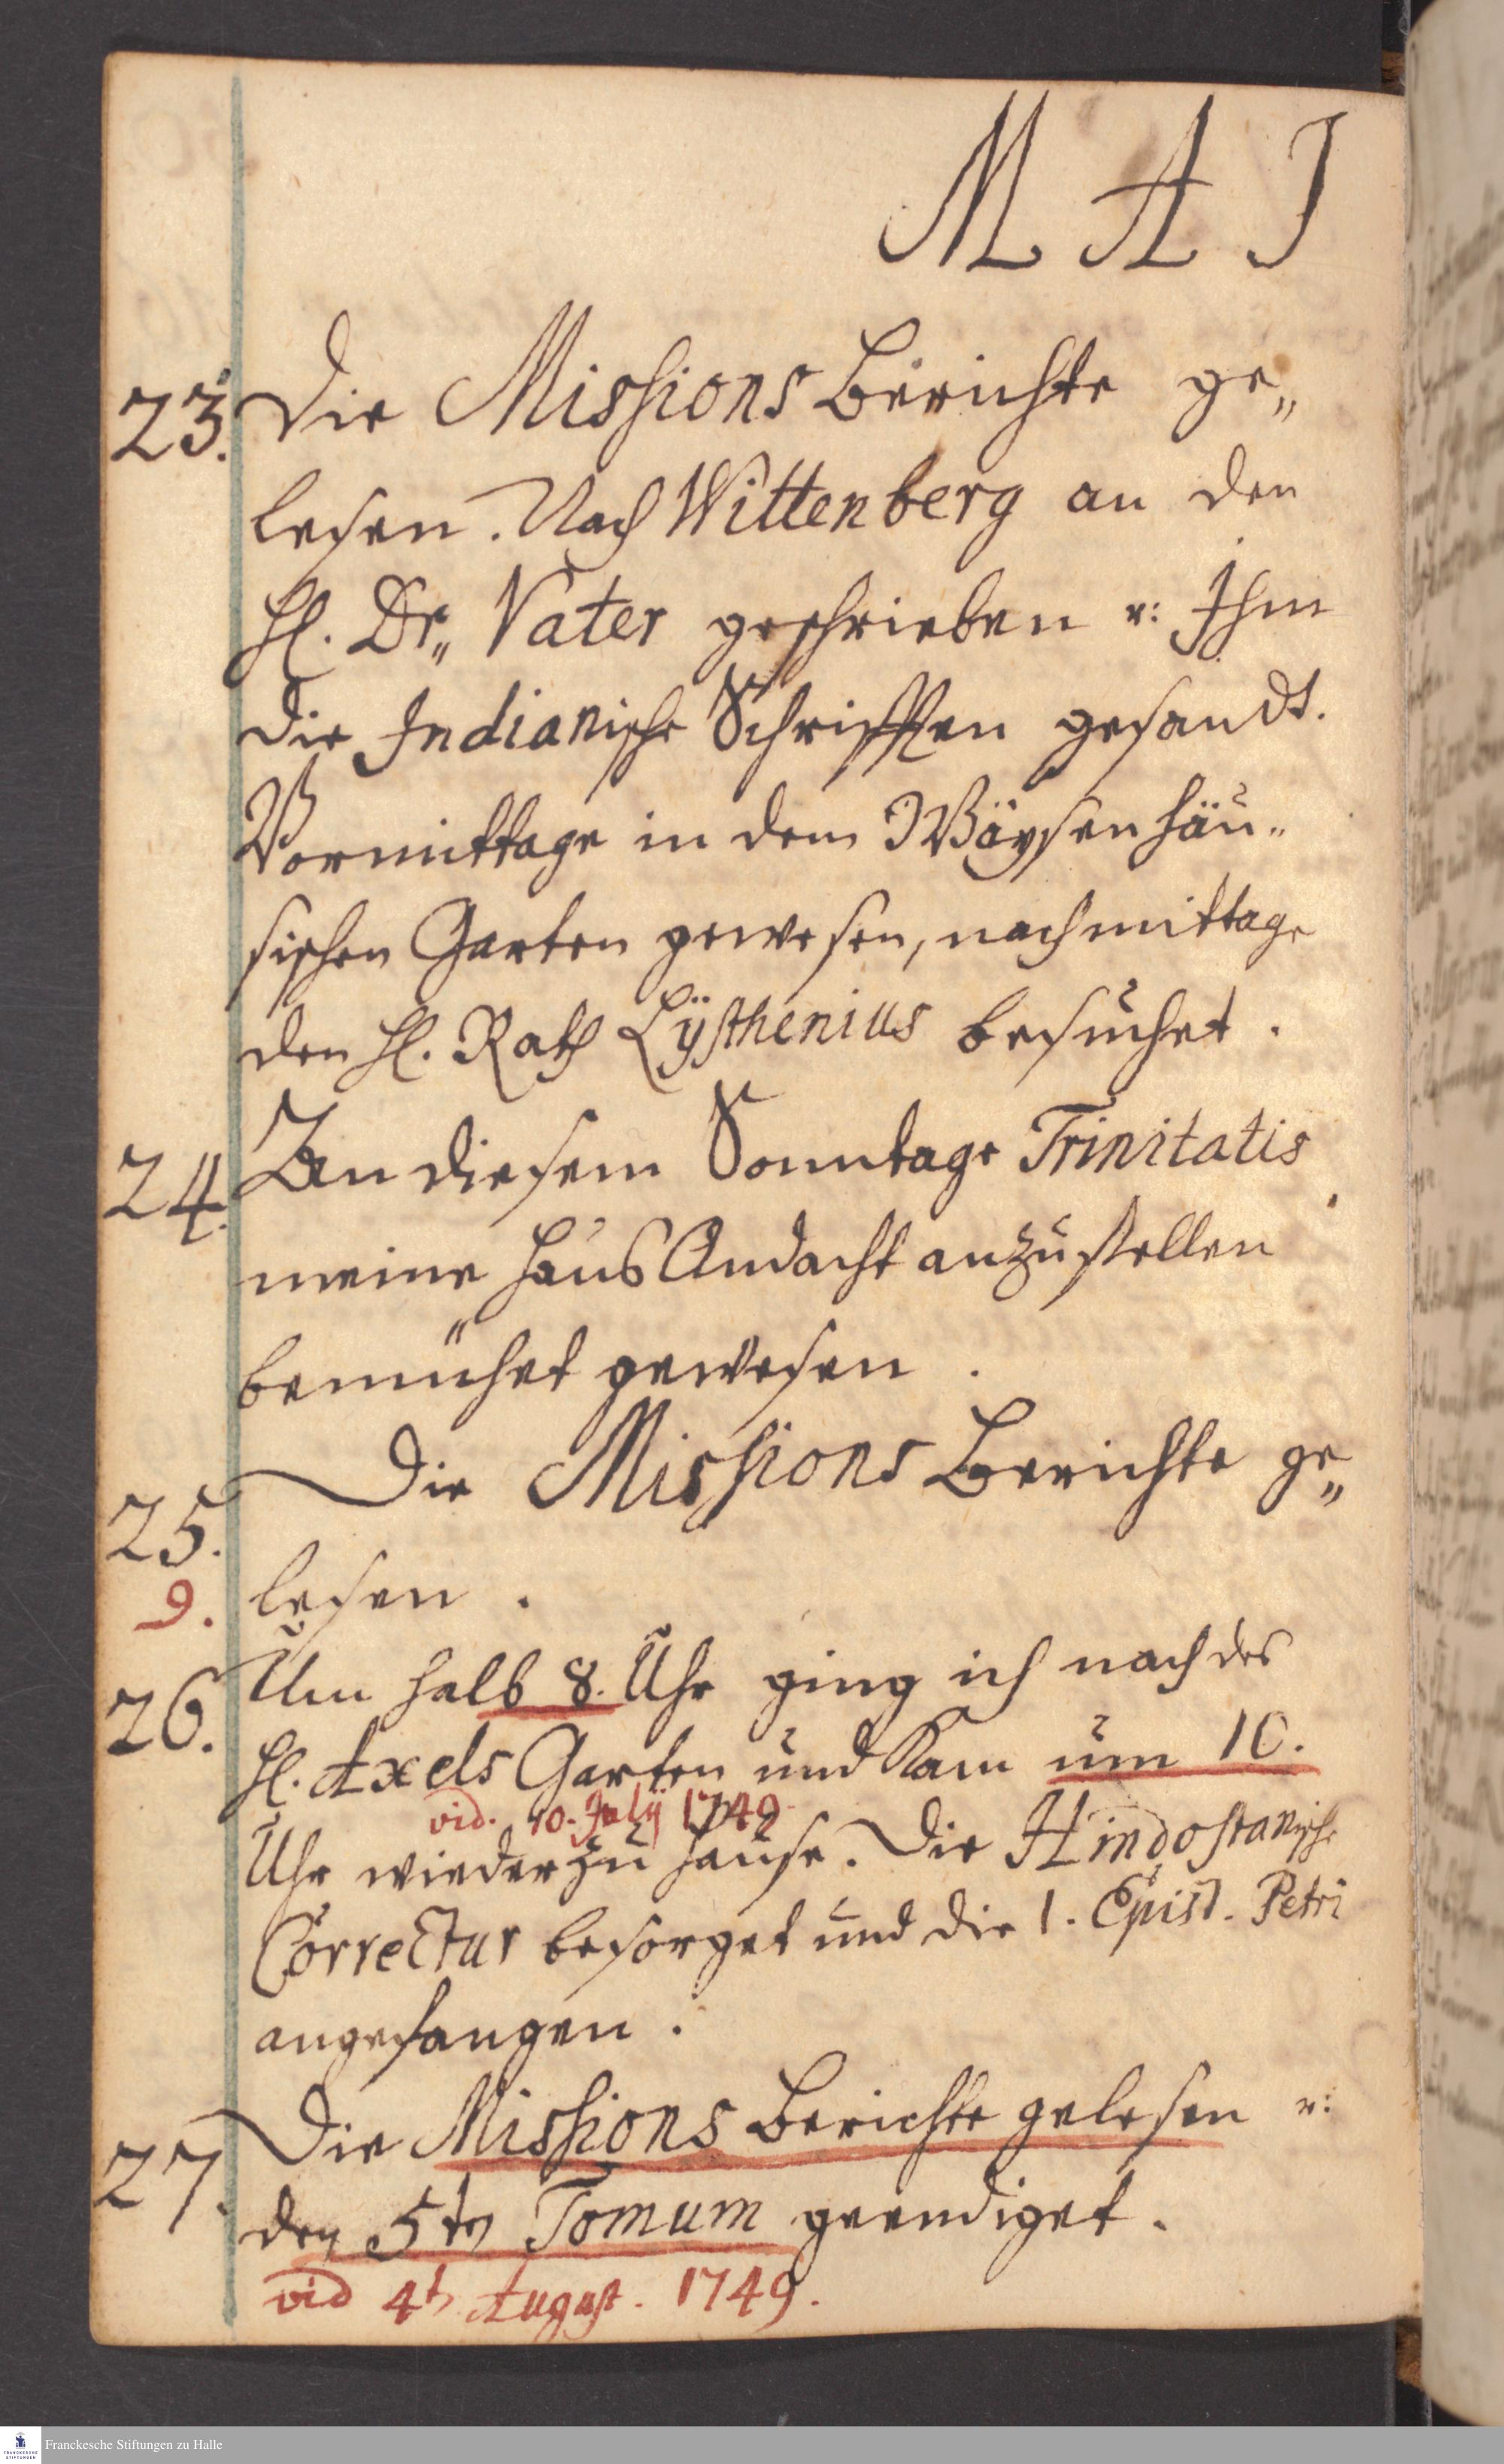 M A J
23. Die Missions Berichte ge„
lesen. Nach Wittenberg an den
H. Dr„ Vater geschrieben u: Ihm
die Indianische Schrifften gesandt.
Vormittage in dem Wäysenhäu„
sischen Garten gewesen, nachmittage
den H. Rath Lÿsthenius besuchet.
24. An diesem Sonntage Trinitatis
meine Haus Andacht anzustellen
bemühet gewesen.
25. Die Missions Berichte ge„
9. lesen.
26. Um halb 8. Uhr ging ich nach des
H. Axels Garten und kam um 10.
vid. 10. Julÿ 1749
Uhr wieder zu Hause. Die Hindostanische
Correctur besorget und die 1. Epist. Petri
angefangen.
27. Die Missions Berichte gelesen u:
den 5tn Tomum geendiget.
vid 4t August. 1749.
Franckesche Stiftungen zu Halle
FRANCKESCHE STIFTUNGEN